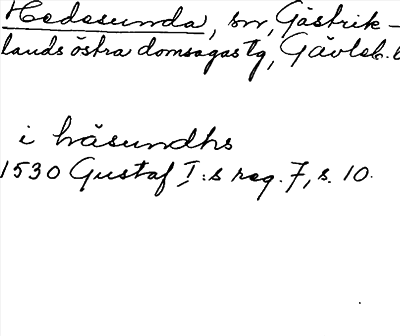 Hedesunda, sn, Gästrik-
lands östra domsagas tg, Gävleb. l
i håsundhs
1530 Gustaf I:s reg. 7, s. 10.